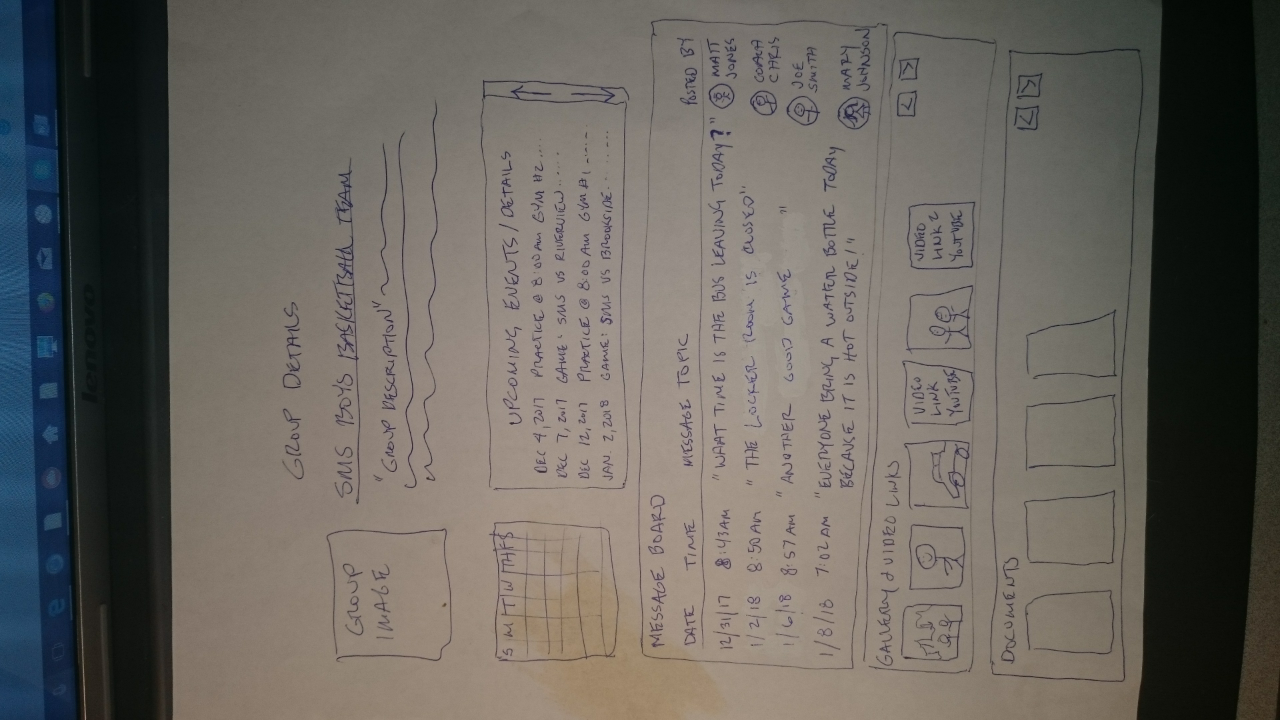 GROUP DETAILS
GROUP
IMAGE
SMS BOYS BASKETBALL TEAM
"GROUP DESCRIPTION"
S M T W TH F S
UPCOMING EVENTS/DETAILS
DEC 4, 2017 PRACTICE @ 8:00AM GYM #2.....
DEC 7, 2017 GAME: SMS VS RIVERVIEW.....
DEC 12, 2017 PRACTICE @ 8:00AM GYM #1 -----
JAN. 2, 2018 GAME: SMS VS BROOKSIDE.......
MESSAGE BOARD
DATE TIME MESSAGE TOPIC POSTED BY
12/31/17 8:43AM "WHAT TIME IS THE BUS LEAVING TODAY?" MATT JONES
1/2/18 8:50AM "THE LOCKER ROOM IS CLOSED" COACH CHRIS
1/6/18 8:57AM "ANOTHER GOOD GAME" JOE SMITH
1/8/18 7:02AM "EVERYONE BRING A WATER BOTTLE TODAY MARY JOHNSON
BECAUSE IT IS HOT OUTSIDE!"
GALLERY & VIDEO LINKS
< >
VIDEO
LINK
YOUTUBE
VIDEO
LINK 2
YOUTUBE
DOCUMENTS
< >
lenovo